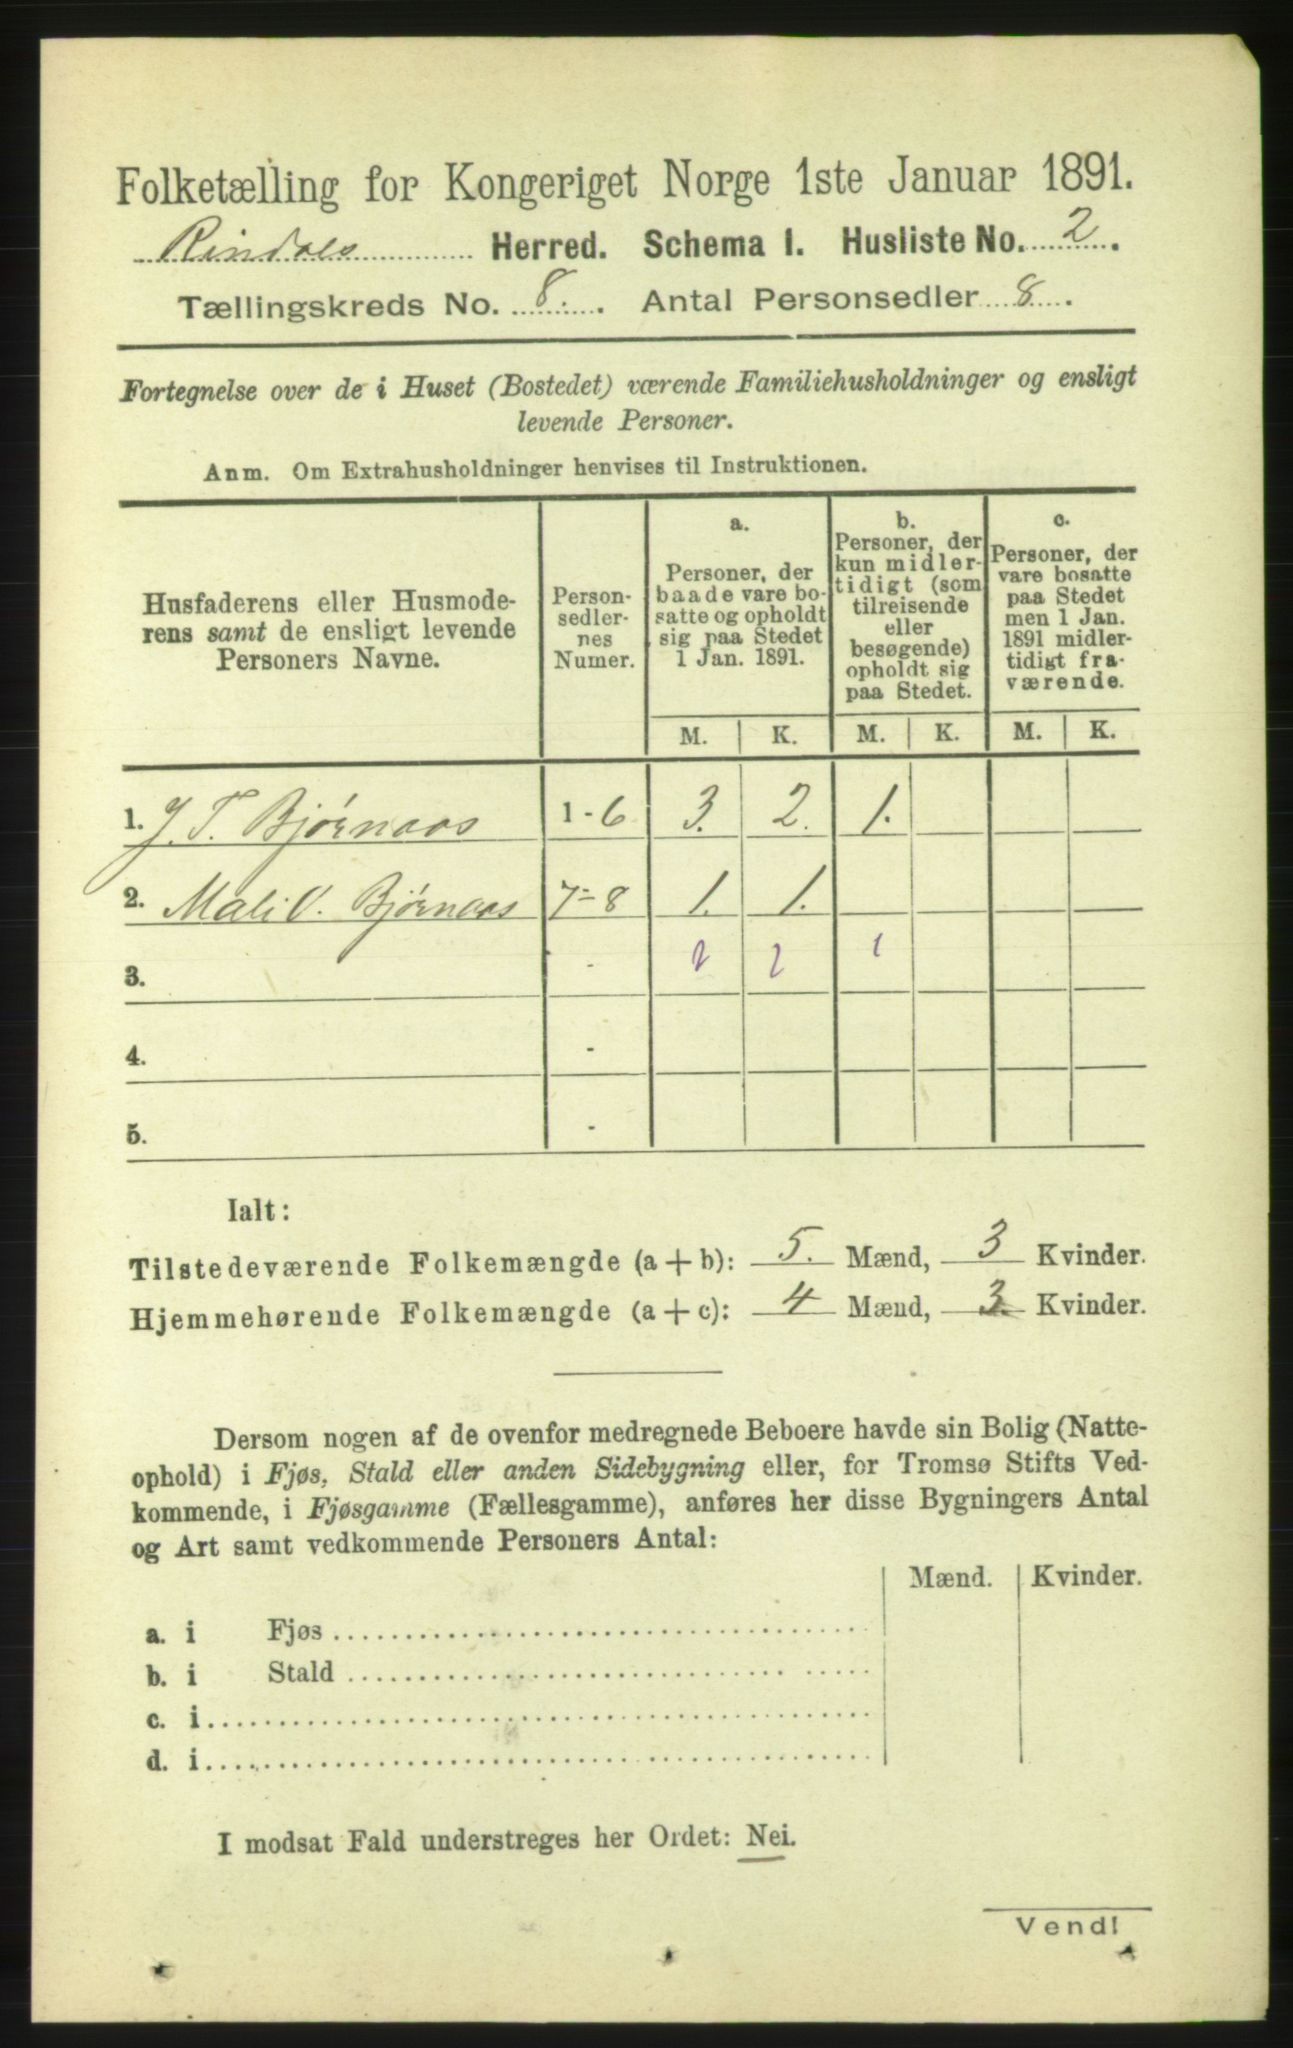 Folketælling for Kongeriget Norge 1ste Januar 1891.
Rindals Herred. Schema I. Husliste No. 2.
Tællingskreds No. 8. Antal Personsedler 8.
Fortegnelse over de i Huset (Bostedet) værende Familiehusholdninger og ensligt
levende Personer.
Anm. Om Extrahusholdninger henvises til Instruktionen.
Husfaderens eller Husmode-
rens samt de ensligt levende
Personers Navne.
Person-
sedler-
nes
Numer.
a.
Personer, der
baade vare bo-
satte og opholdt
sig paa Stedet
1 Jan. 1891.
b.
Personer, der
kun midler-
tidigt (som
tilreisende
eller
besøgende)
opholdt sig
paa Stedet.
c.
Personer, der
vare bosatte
paa Stedet
men 1 Jan.
1891 midler-
tidigt fra-
værende.
M. K. M. K. M. K.
1. J. T. Bjørnaas 1-6 3. 2. 1.
2. Mali O. Bjørnaas 7-8 1. 1.
3. - 2 2 1
4. -
5. -
Ialt:
Tilstedeværende Folkemængde (a+b): 5. Mænd, 3 Kvinder.
Hjemmehørende Folkemængde (a+c): 4 Mænd, 3. Kvinder.
Dersom nogen af de ovenfor medregnede Beboere havde sin Bolig (Natte-
ophold) i Fjøs, Stald eller anden Sidebygning eller, for Tromsø Stifts Ved-
kommende, i Fjøsgamme (Fællesgamme), anføres her disse Bygningers Antal
og Art samt vedkommende Personers Antal:
Mænd. Kvinder.
a. i Fjøs
b. i Stald
c. i
d. i
I modsat Fald understreges her Ordet: Nei.
Vend!